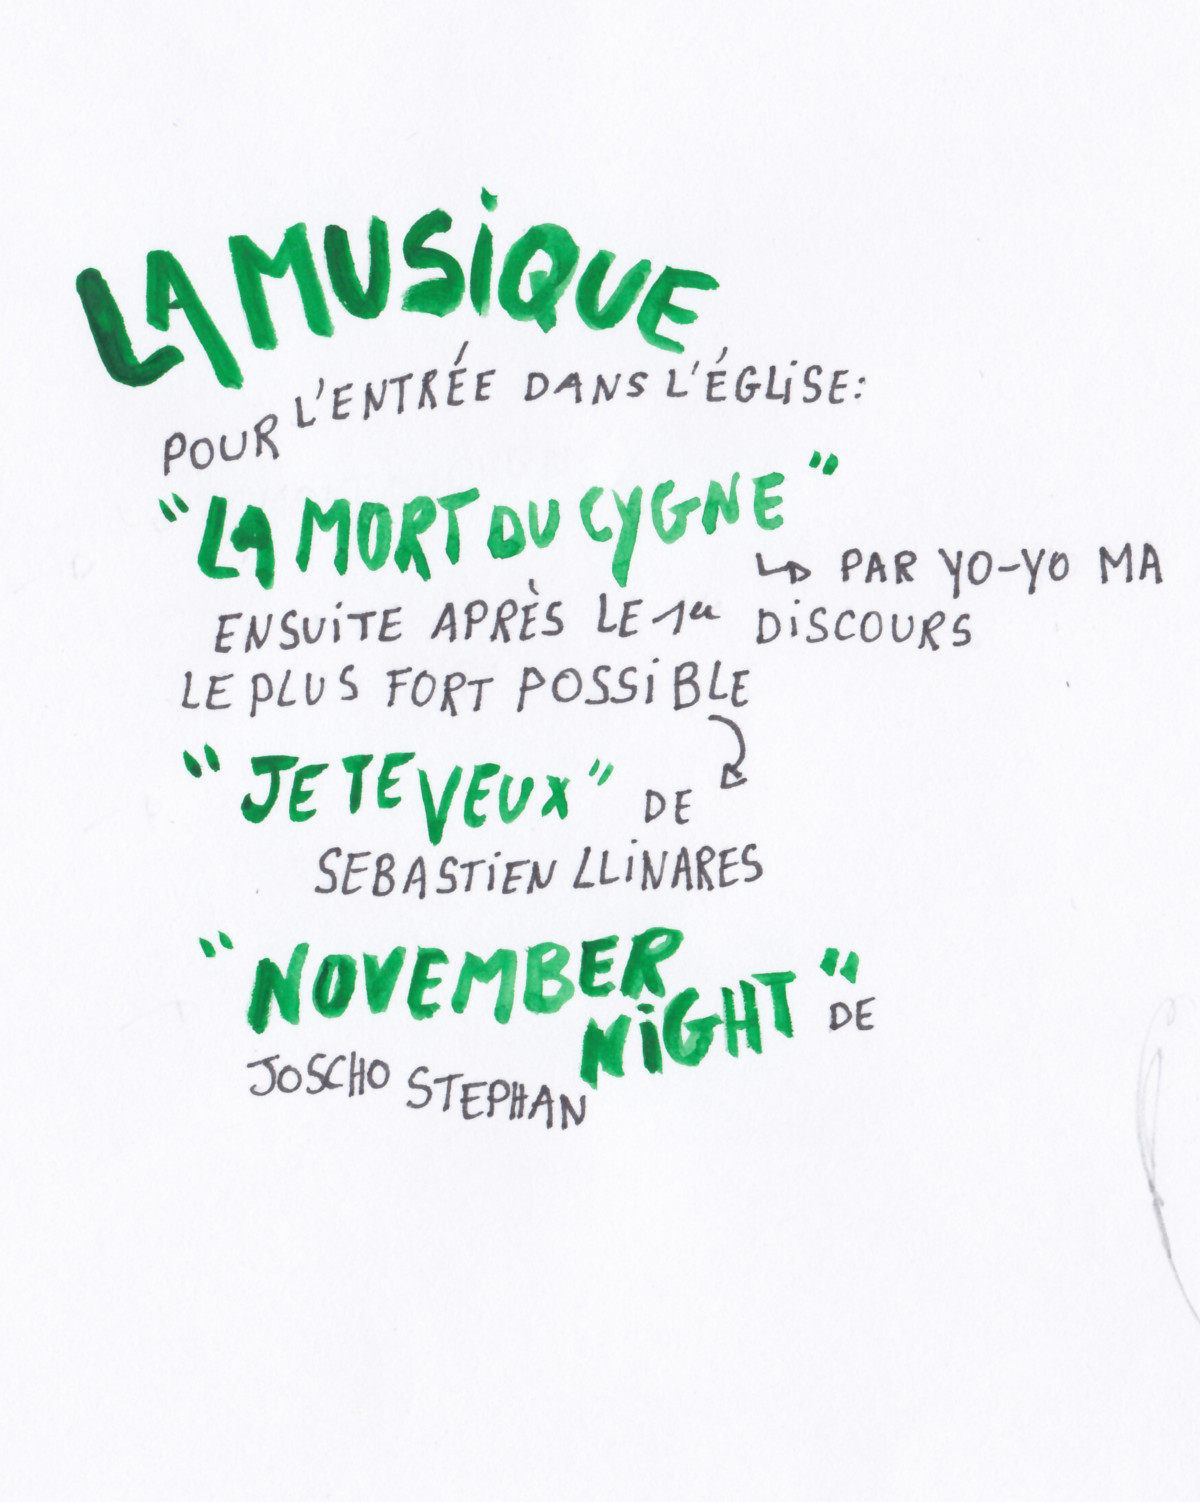 LA MUSiQUE
POUR L'ENTRÉE DANS L'ÉGLiSE:
"LA MORT DU CYGNE"
↳ PAR YO-YO MA
ENSUiTE APRÈS LE 1er DiSCOURS
LE PLUS FORT POSSiBLE
"JE TE VEUX" DE
SEBASTiEN LLiNARES
"NOVEMBER
NiGHT" DE
JOSCHO STEPHAN